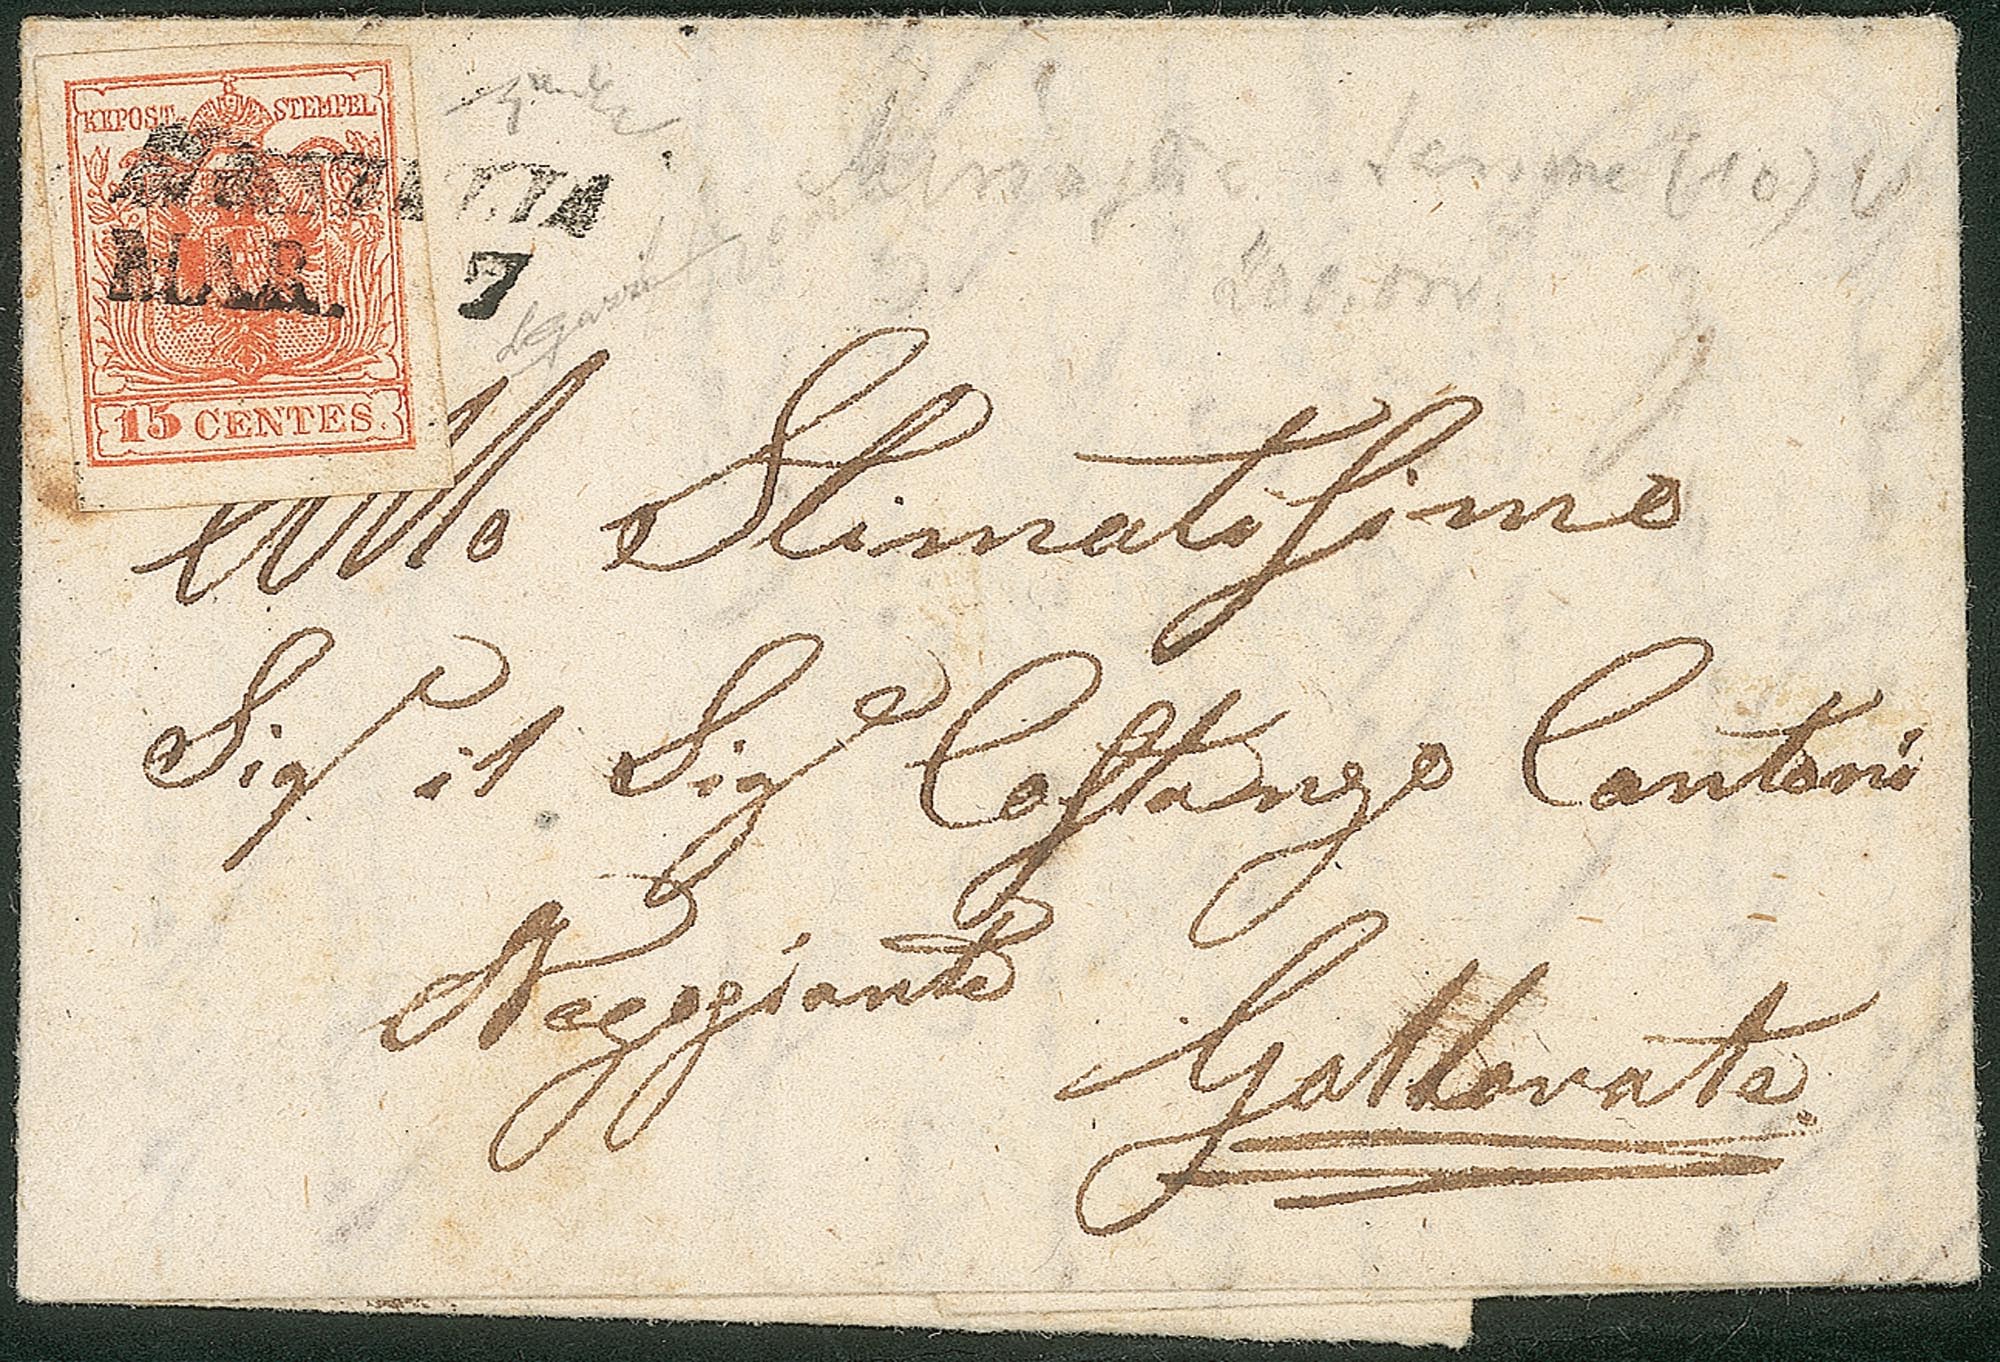 KKPOST-STEMPEL
15 CENTES.
MAR. 7
Allo Stimatissimo
Sigr il Sigr Costanzo Cantoni
Negoziante
Gallarate